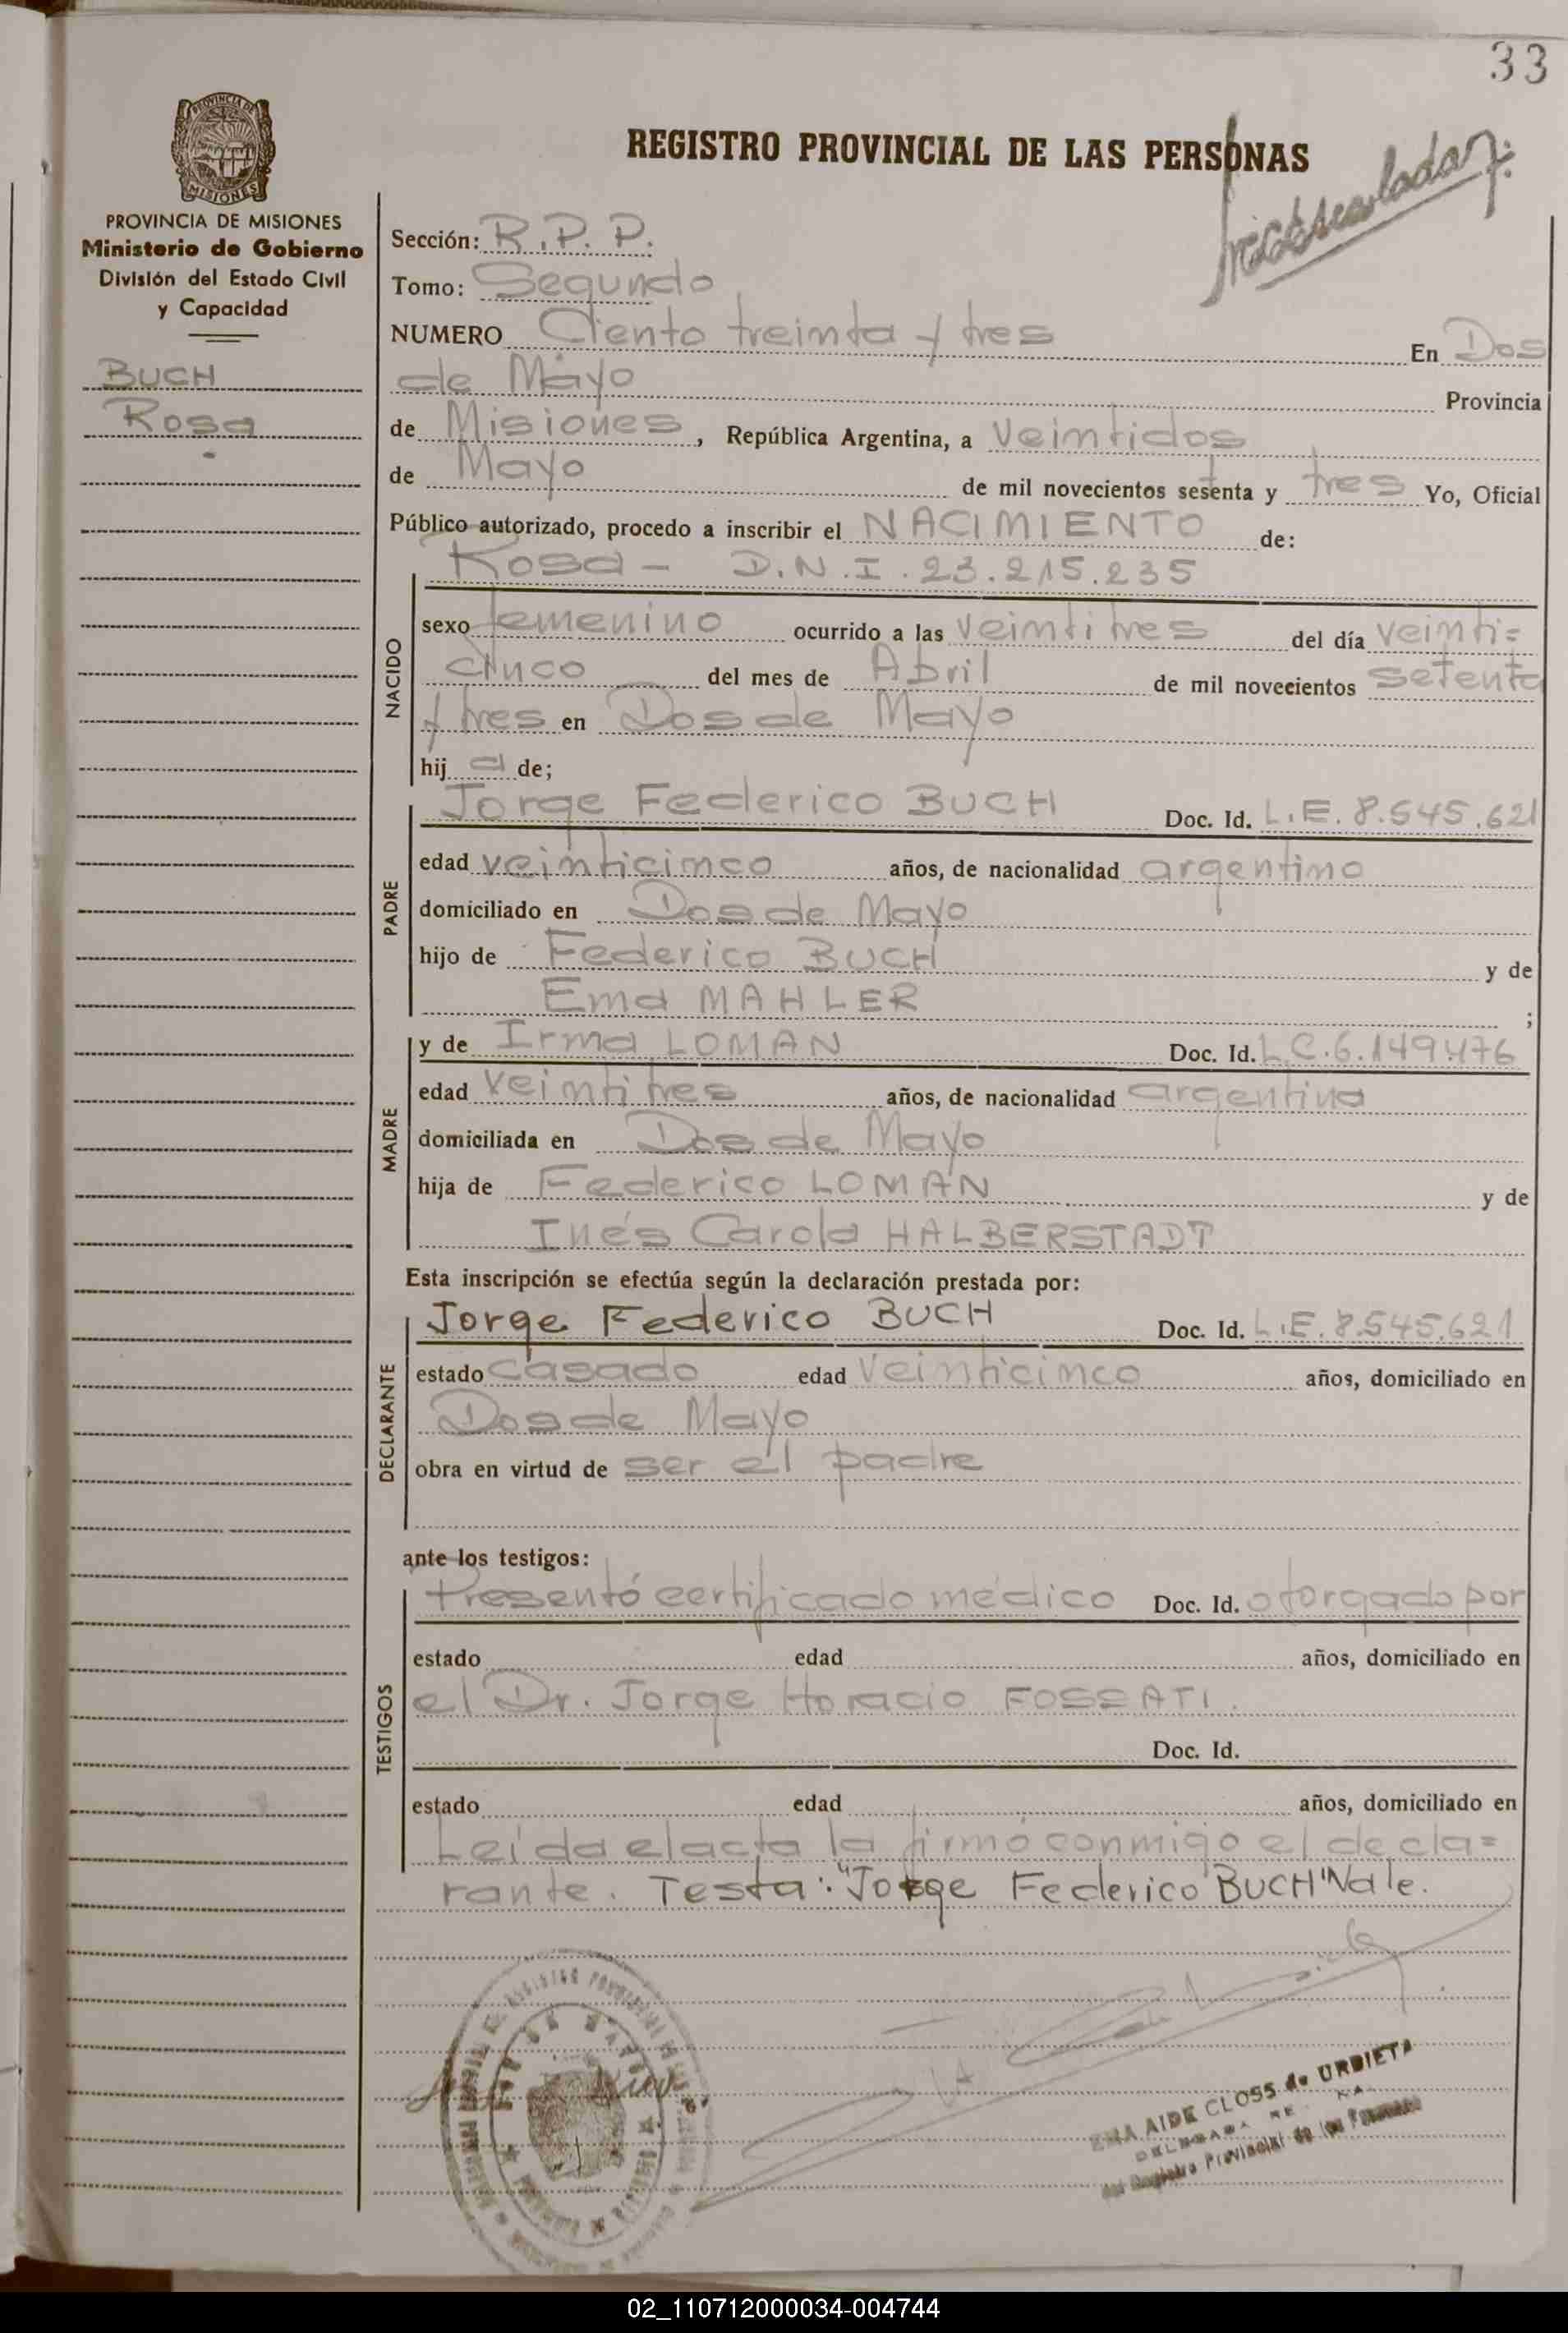 33
REGISTRO PROVINCIAL DE LAS PERSONAS
PROVINCIA DE
MISIONES
PROVINCIA DE MISIONES
Ministerio de Gobierno
División del Estado Civil
y Capacidad
BUCH
Rosa
Sección: R.P.P.
Tomo: Segundo
NUMERO Ciento treinta y tres En Dos
de Mayo Provincia
de Misiones, República Argentina, a Veintidos
de Mayo de mil novecientos setenta y tres Yo, Oficial
Público autorizado, procedo a inscribir el NACIMIENTO de:
Rosa - D.N.I. 23.215.235
NACIDO
sexo femenino ocurrido a las veintitres del día veinti=
cinco del mes de Abril de mil novecientos setenta
y tres en Dos de Mayo
hij a de;
PADRE
Jorge Federico BUCH Doc. Id. L.E. 8.545.621
edad veinticinco años, de nacionalidad argentino
domiciliado en Dos de Mayo
hijo de Federico BUCH y de
Ema MAHLER ;
MADRE
y de Irma LOMAN Doc. Id. L.C. 6.149.476
edad veintitres años, de nacionalidad argentina
domiciliada en Dos de Mayo
hija de Federico LOMAN y de
Inés Carola HALBERSTADT
Esta inscripción se efectúa según la declaración prestada por:
DECLARANTE
Jorge Federico BUCH Doc. Id. L.E. 8.545.621
estado casado edad veinticinco años, domiciliado en
Dos de Mayo
obra en virtud de ser el padre
ante los testigos:
TESTIGOS
Presentó certificado médico Doc. Id. otorgado por
estado edad años, domiciliado en
el Dr. Jorge Horacio FOSSATI.
Doc. Id.
estado edad años, domiciliado en
Leída el acta la firmó conmigo el decla=
rante. Testa: "Jorge Federico BUCH" Vale.
EMA AIDE CLOSS de URBIETA
del Registro Provincial de las Personas
02_110712000034-004744